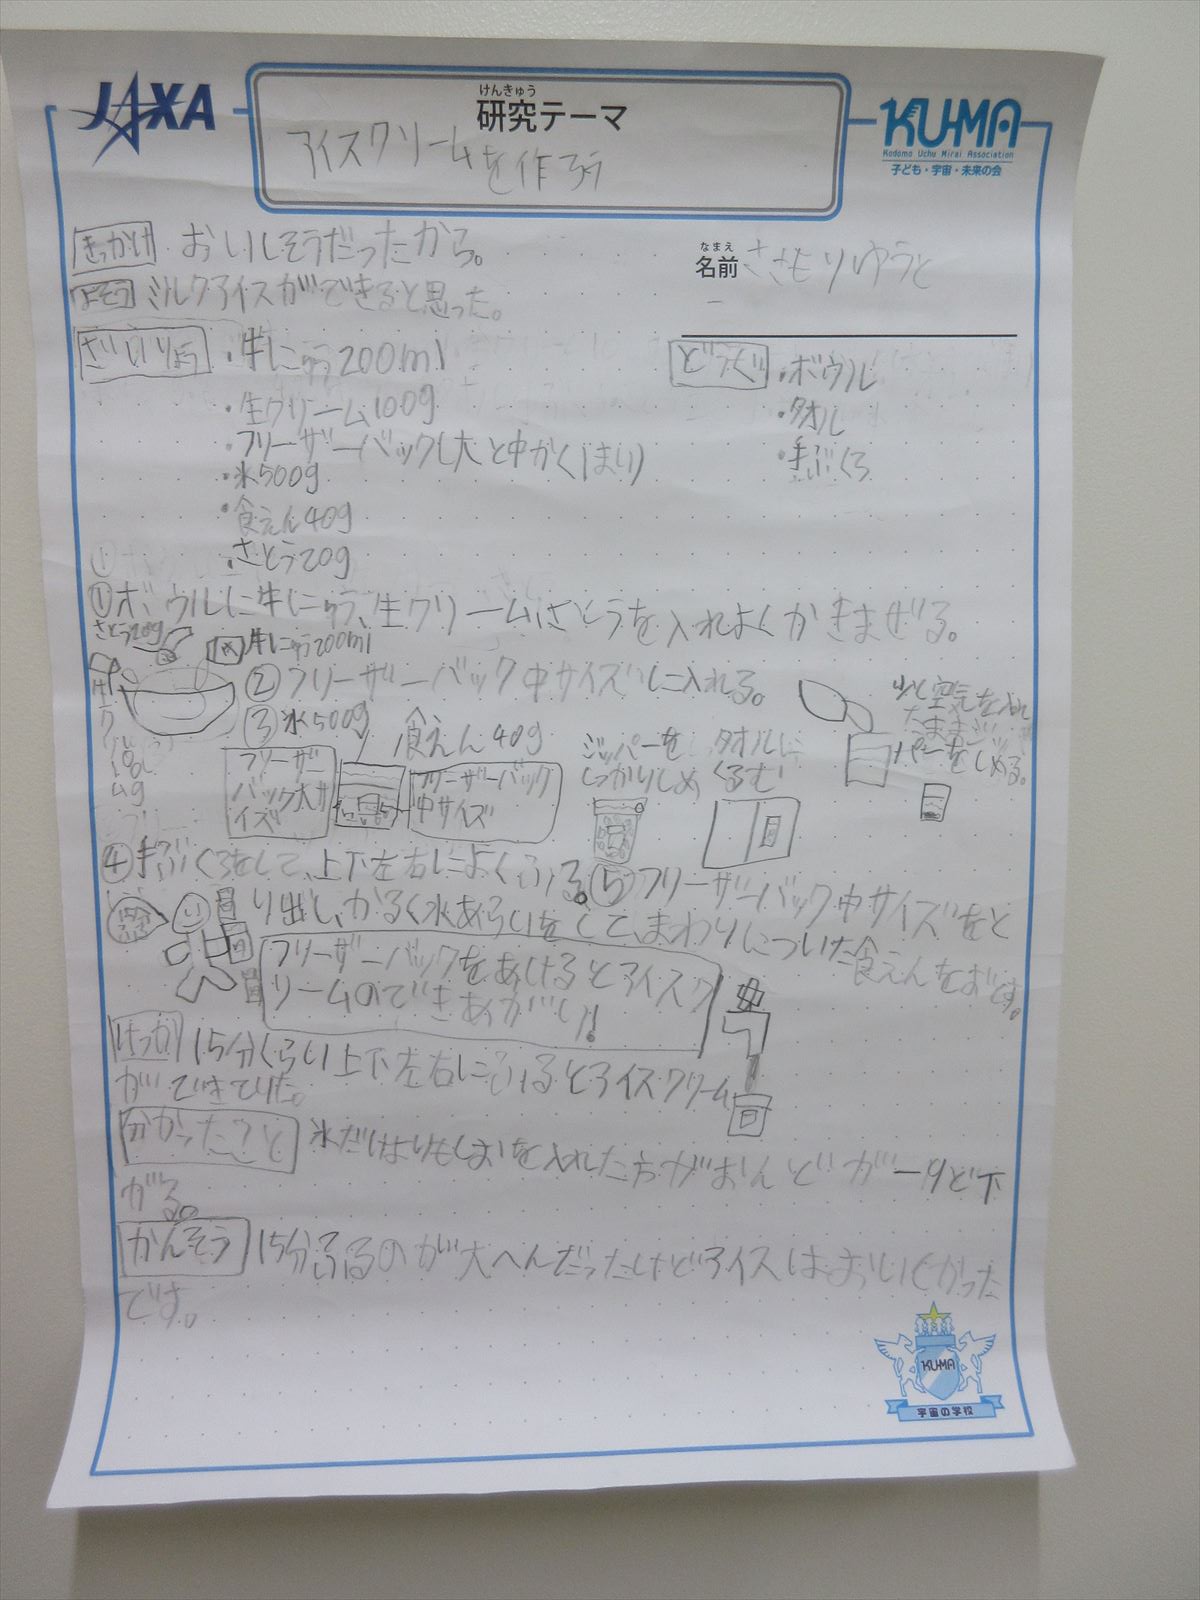 JAXA
けんきゅう
研究テーマ
アイスクリームを作ろう
KU-MA
Kodomo Uchu Mirai Association
子ども・宇宙・未来の会
きっかけ おいしそうだったから。
なまえ
名前 ささもりゆうと
よそう ミルクアイスができると思った。
ざいりょう ・牛にゅう200ml
・生クリーム100g
・フリーザーバック(大と中かく1まい)
・氷500g
・食えん40g
・さとう20g
どうぐ ・ボウル
・タオル
・手ぶくろ
①ボウルに牛にゅう、生クリーム、さとうを入れよくかきまぜる。
さとう20g
牛にゅう200ml
②フリーザーバック中サイズに入れる。
少し空気を入れ
たままジッ
パーをしめる。
③氷500g 食えん40g
フリーザー
バック大サ
イズ
フリーザーバック
中サイズ
ジッパーを
しっかりしめ
タオルに
くるむ
④手ぶくろをして、上下左右によくふる。
⑤フリーザーバック中サイズをと
り出し、かるく水あらいをして、まわりについた食えんをおとす。
フリーザーバックをあけるとアイスク
リームのできあがり!
けっか 15分くらい上下左右にふるとアイスクリーム
ができていた。
分かったこと 氷だけよりもしおを入れた方がおんどが一9ど下
がる。
かんそう 15分ふるのが大へんだったけどアイスはおいしかった
です。
KU-MA
宇宙の学校